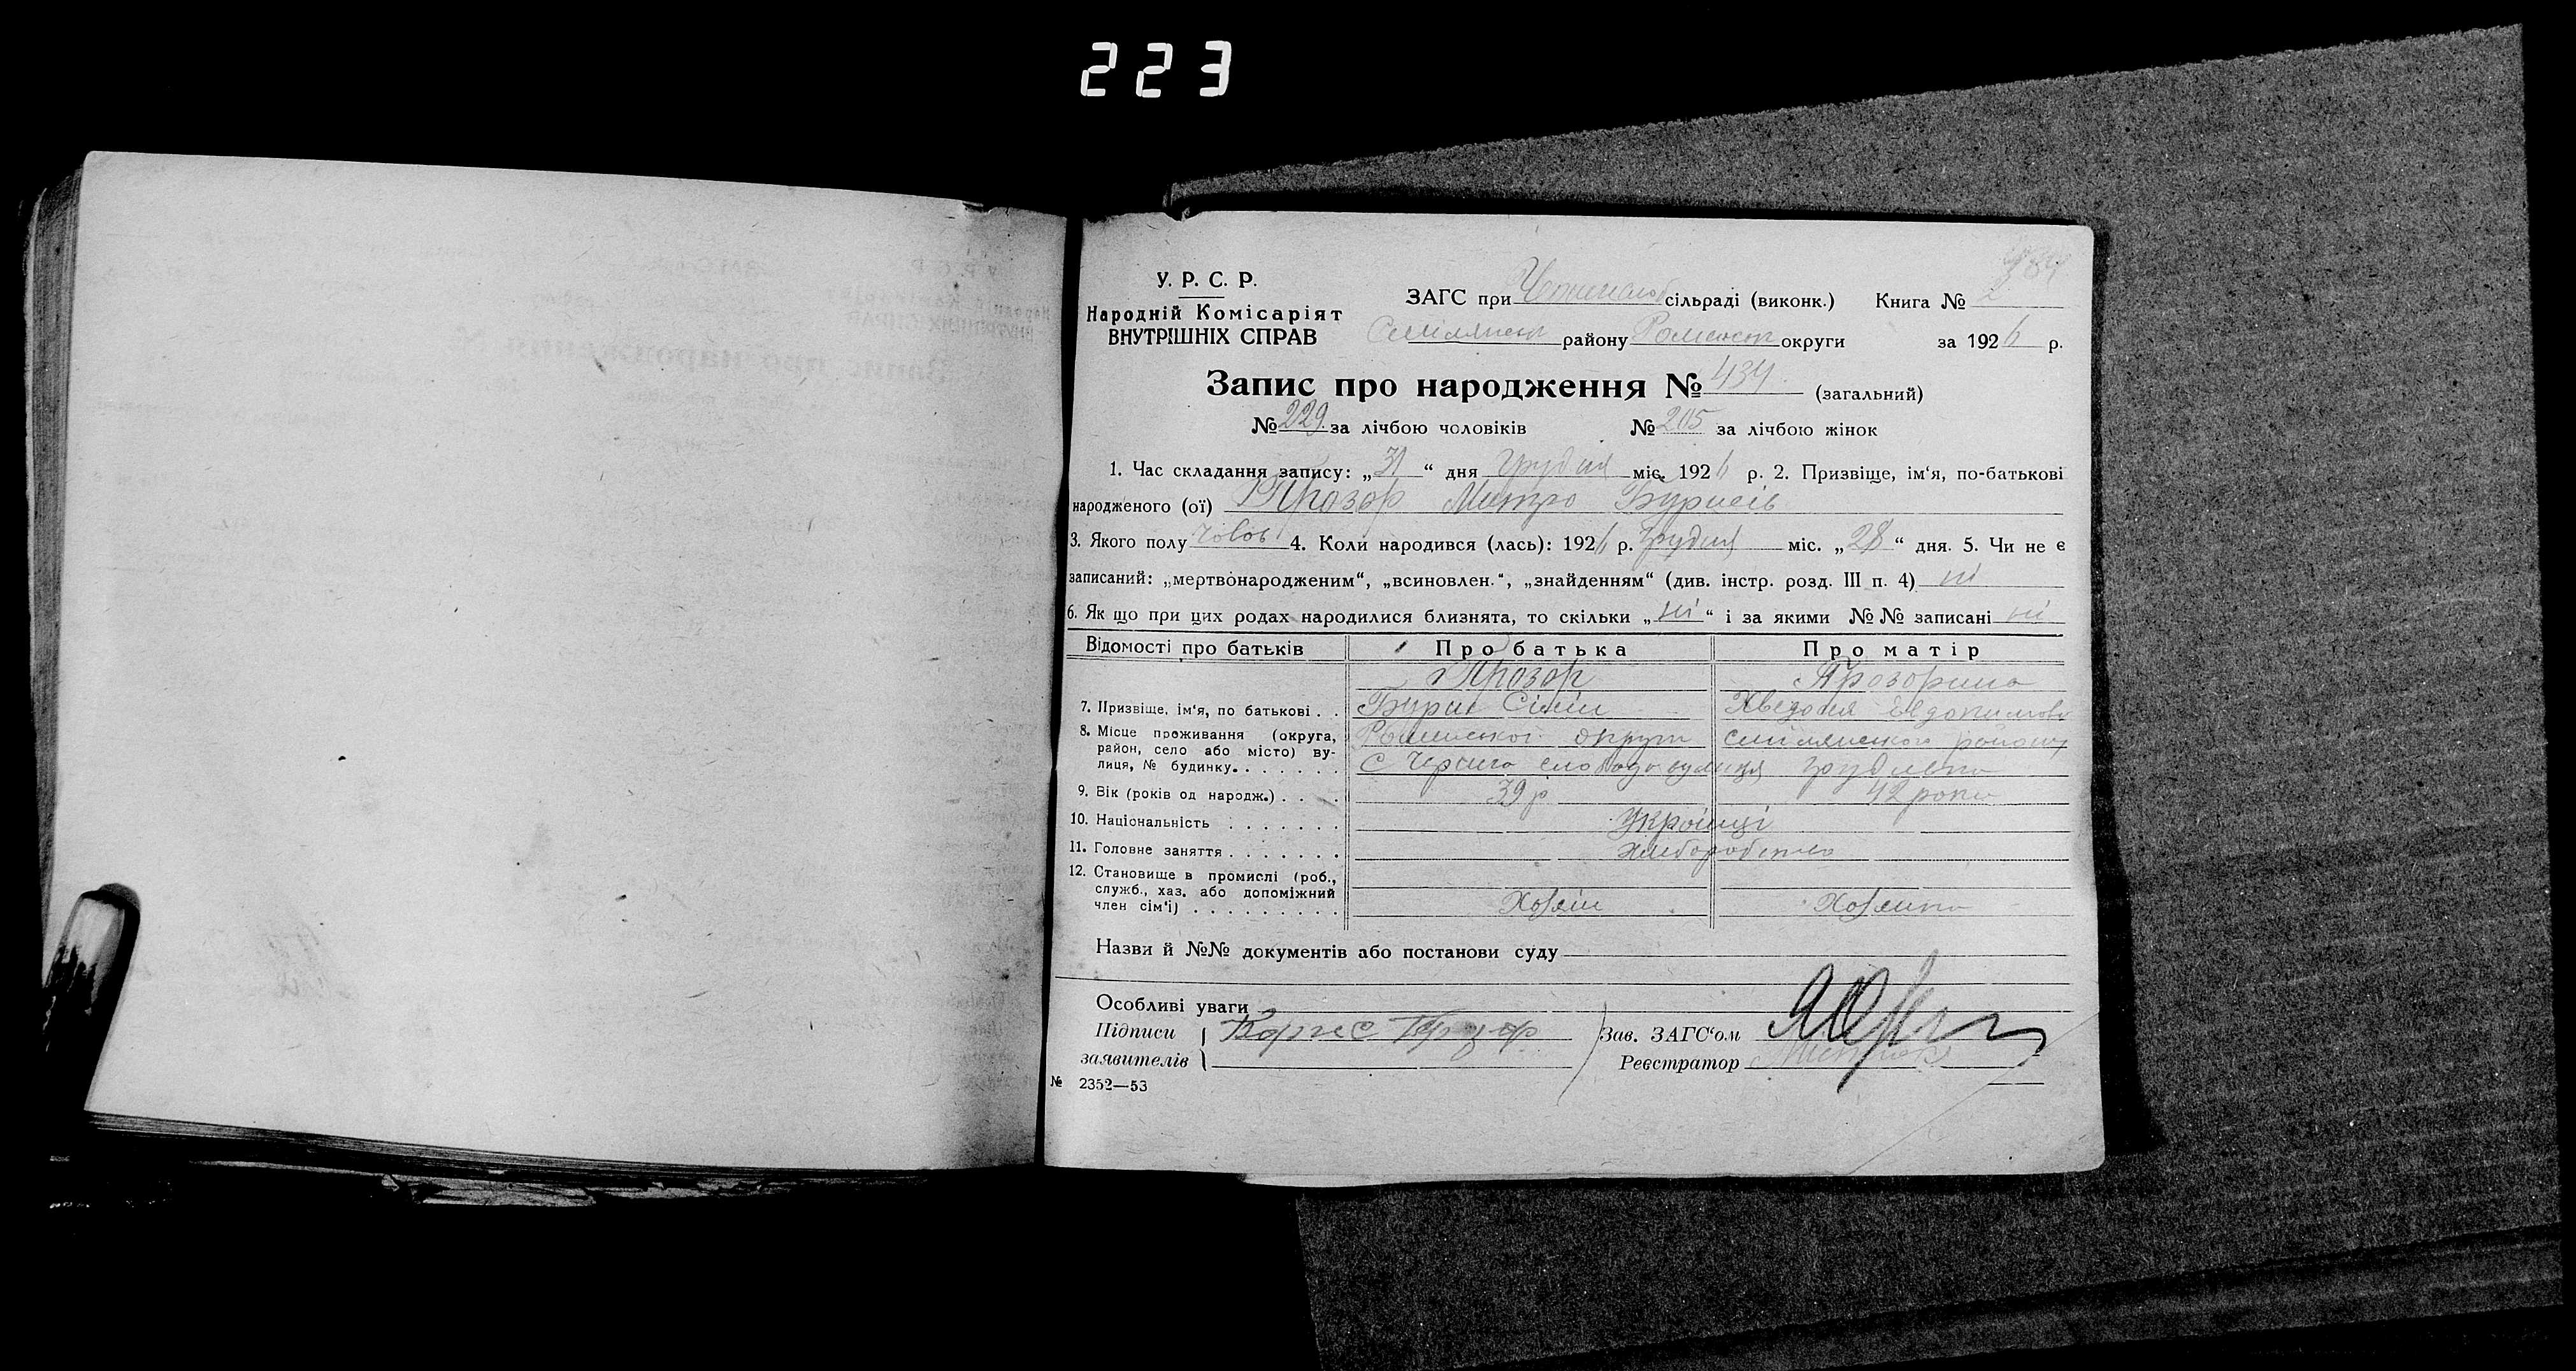 223
У. Р. С. Р.
Народній Комісаріят
ВНУТРІШНІХ СПРАВ
ЗАГС при сільраді (виконк.) Книга № 2
району Роменськ округи за 1926 р.
Запис про народження № 434 (загальний)
№ 229 за лічбою чоловіків № 205 за лічбою жінок
1. Час складання запису: „31“ дня грудня міс. 1926 р. 2. Призвіще, ім‘я, по-батькові
народженого (ої) Прозор Митро Бурисів
3. Якого полу чолов 4. Коли народився (лась): 1926 р. грудня міс. „28“ дня. 5. Чи не є
записаний: „мертвонародженим“, „всиновлен.“, „знайденням“ (див. інстр. розд. III п. 4) ні
6. Як що при цих родах народилися близнята, то скільки „ні“ і за якими №№ записані ні
Відомості про батьків Про батька Про матір
Прозор Прозорина
7. Призвіще, ім‘я, по батькові . . Бурис Хведося Евдокимова
8. Місце проживання (округа, район, село або місто) вулиця, № будинку. Роменської округи смілянського району
с вулиця
9. Вік (років од народж.) . . . 39 р 42 роки
10. Національність . . . . . . . Українці
11. Головне заняття . . . . . . . Хлиборобство
12. Становище в промислі (роб.,
служб., хаз. або допоміжний
член сім‘ї) . . . . . . . . . Хозяїн Хозяйка
Назви й №№ документів або постанови суду
Особливі уваги
Підписи Борис Прозор Зав. ЗАГС‘ом
заявителів Реєстратор
№ 2352—53